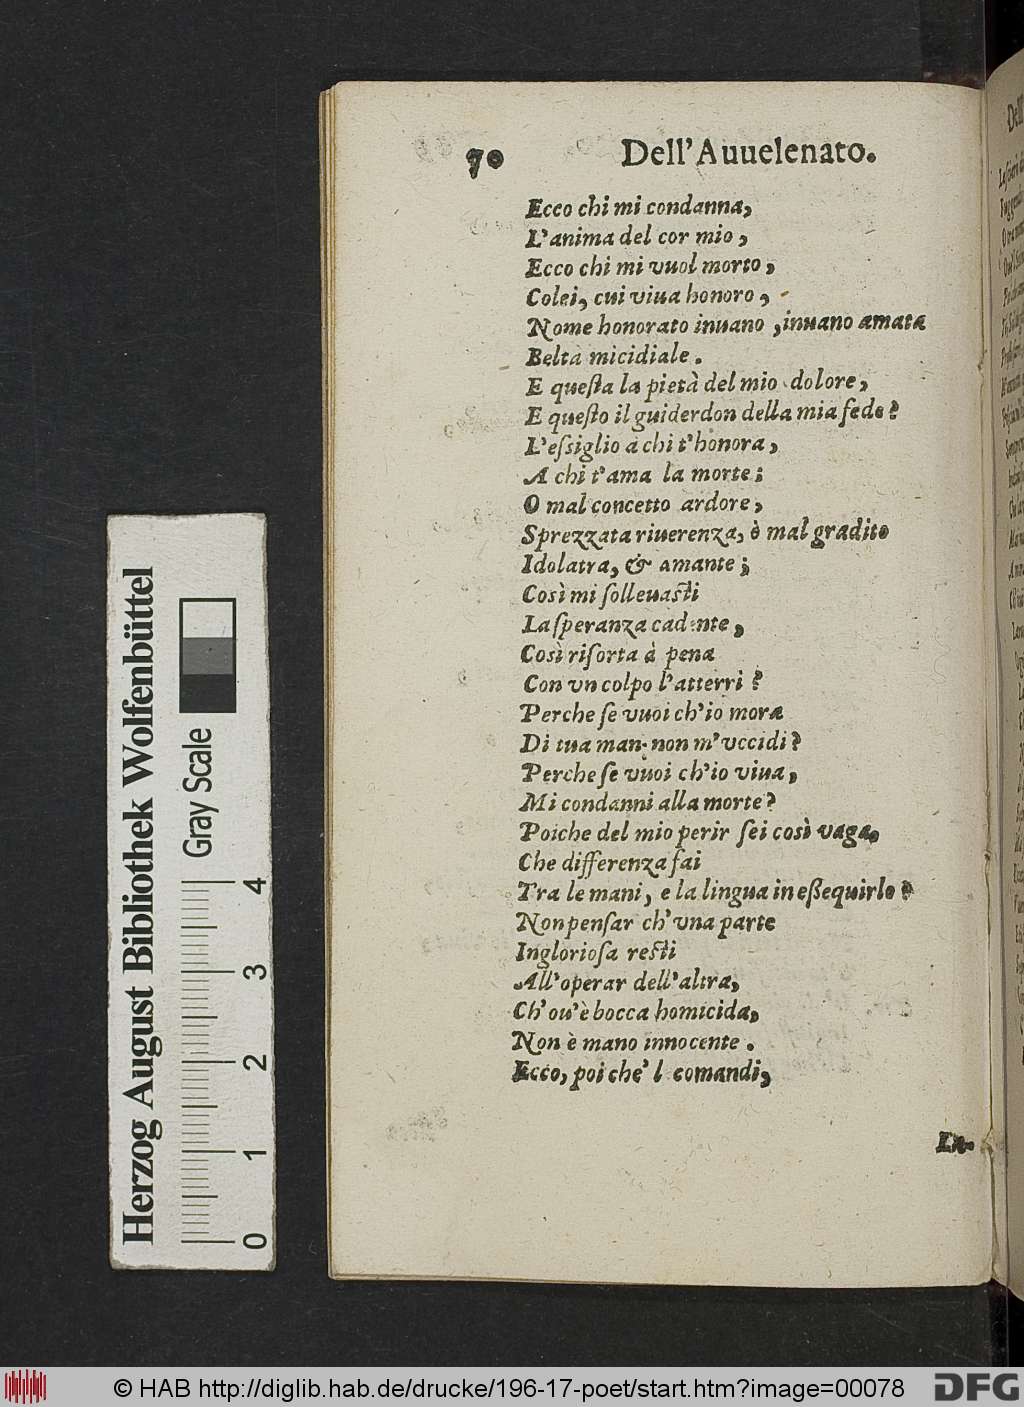 70 Dell'Auuelenato.
Ecco chi mi condanna,
L'anima del cor mio,
Ecco chi mi vuol morto,
Colei, cui viua honoro,
Nome honorato inuano, inuano amata
Beltà micidiale.
E queſta la pietà del mio dolore,
E queſto il guiderdon della mia fede?
L'eſsiglio a chi t'honora,
A chi t'ama la morte;
O mal concetto ardore,
Sprezzata riuerenza, ò mal gradito
Idolatra, & amante;
Così mi ſolleuaſti
La ſperanza cadente,
Così riſorta à pena
Con vn colpo l'atterri?
Perche ſe vuoi ch'io mora
Di tua man non m'vccidi?
Perche ſe vuoi ch'io viua,
Mi condanni alla morte?
Poiche del mio perir ſei così vaga,
Che differenza fai
Tra le mani, e la lingua in eßequirlo?
Non penſar ch'vna parte
Inglorioſa reſti
All'operar dell'altra,
Ch'ou'è bocca homicida,
Non è mano innocente.
Ecco, poi che'l comandi,
La-
Herzog August Bibliothek Wolfenbüttel
Gray Scale
0 1 2 3 4
© HAB http://diglib.hab.de/drucke/196-17-poet/start.htm?image=00078
DFG